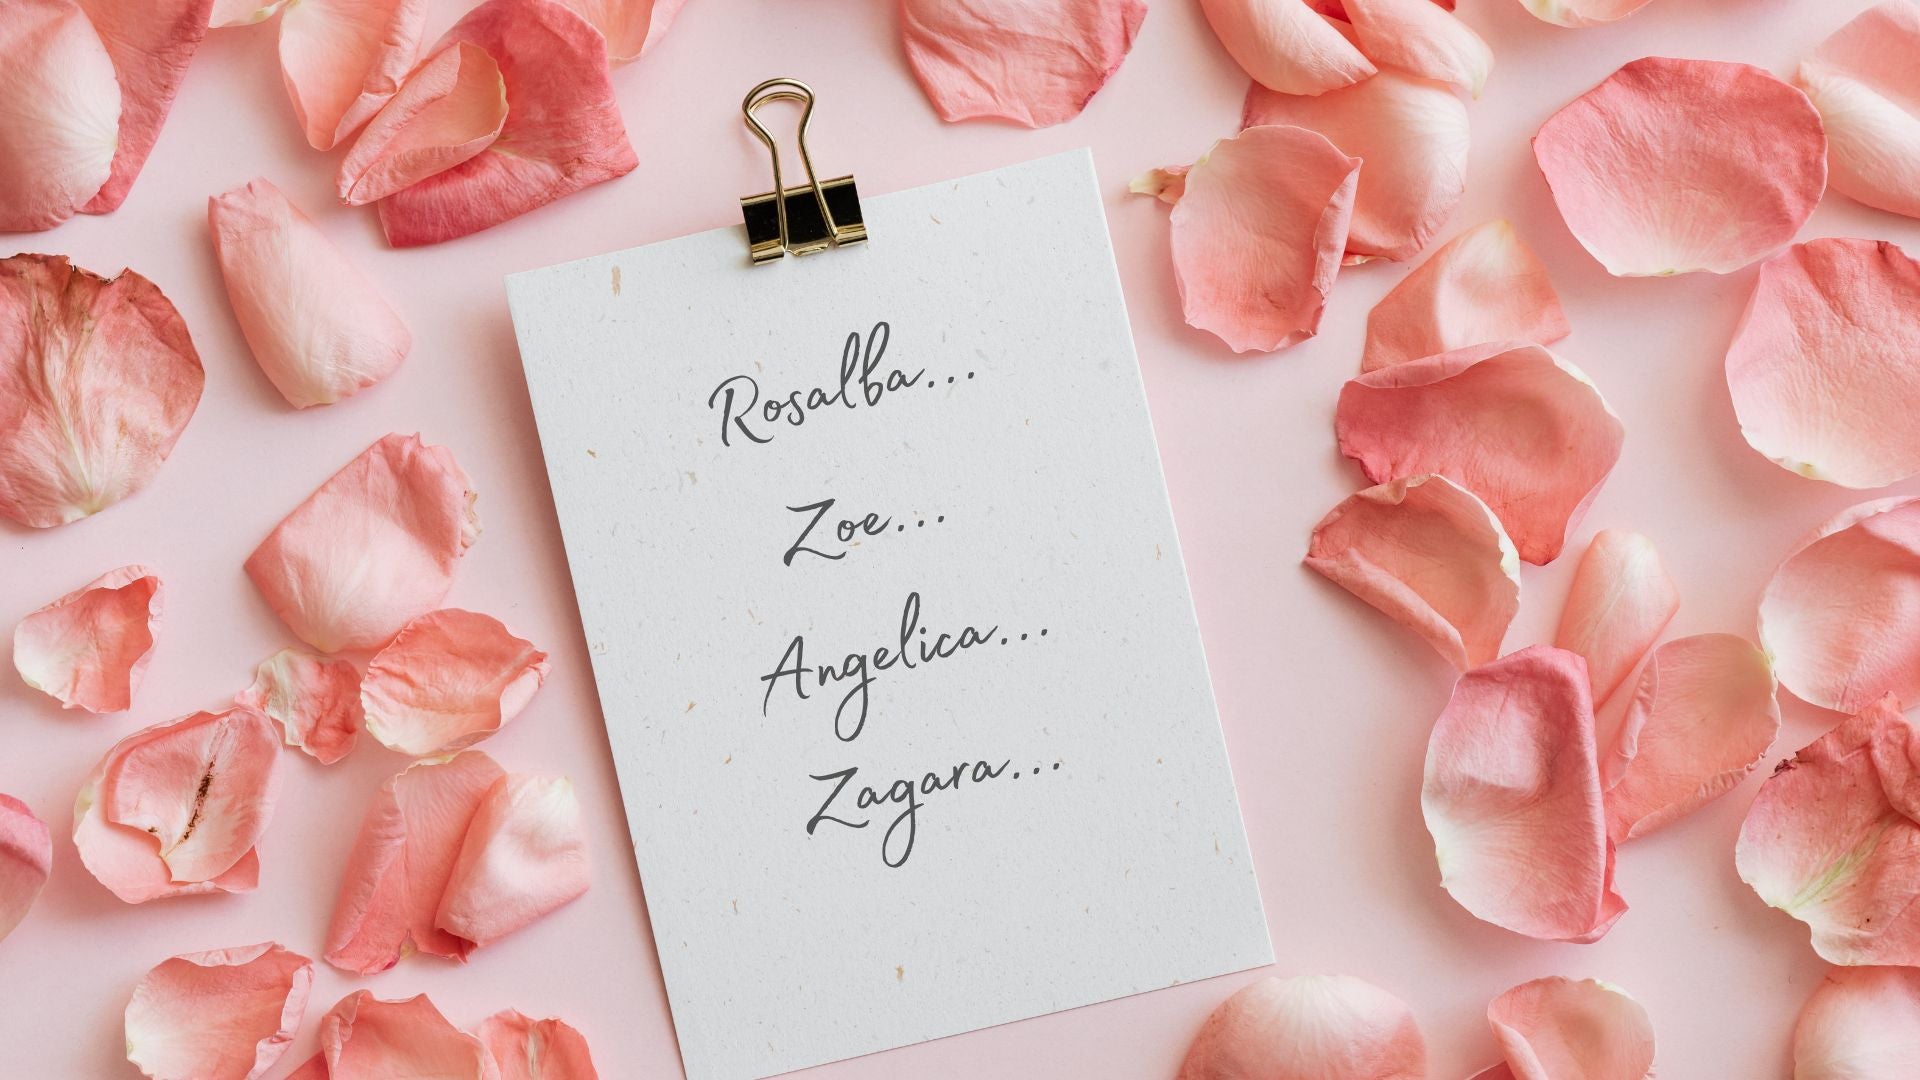 Rosalba...
Zoe...
Angelica...
Zagara...